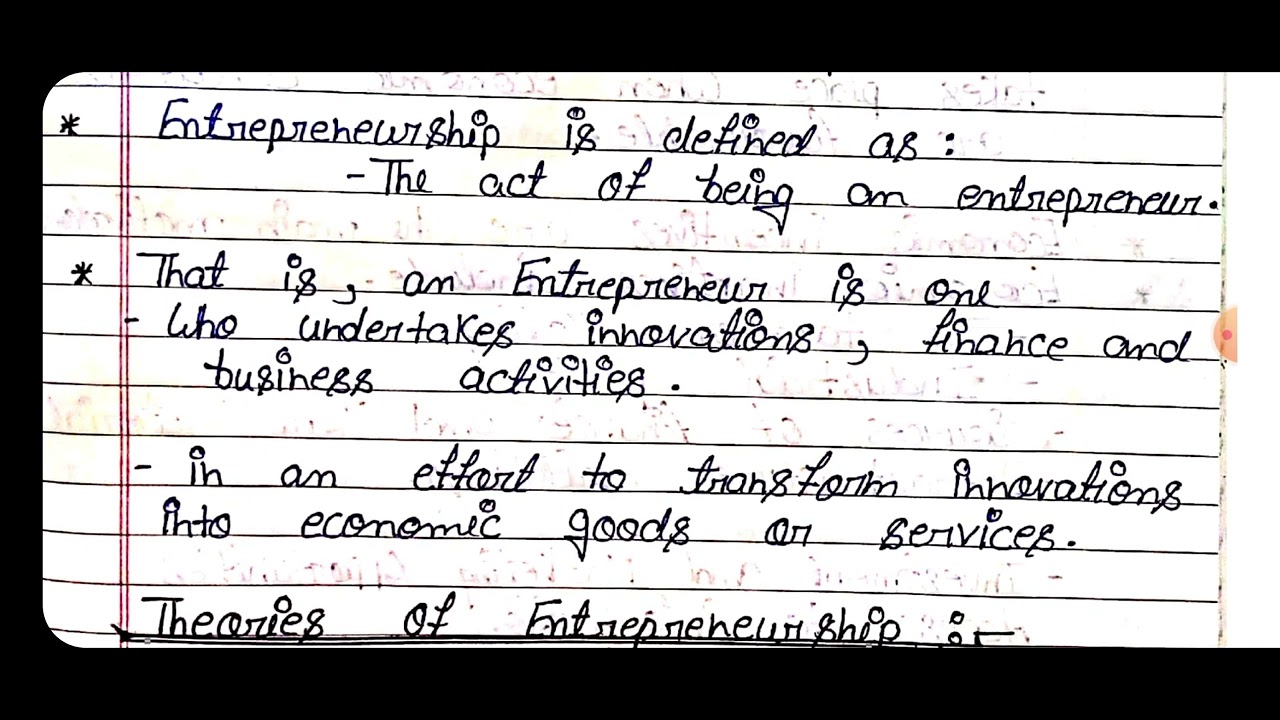 * Entrepreneurship is defined as :
- The act of being an entrepreneur.
* That is, an Entrepreneur is one
- Who undertakes innovations, finance and
business activities.
- in an effort to transform innovations
into economic goods or services.
Theories of Entrepreneurship :-